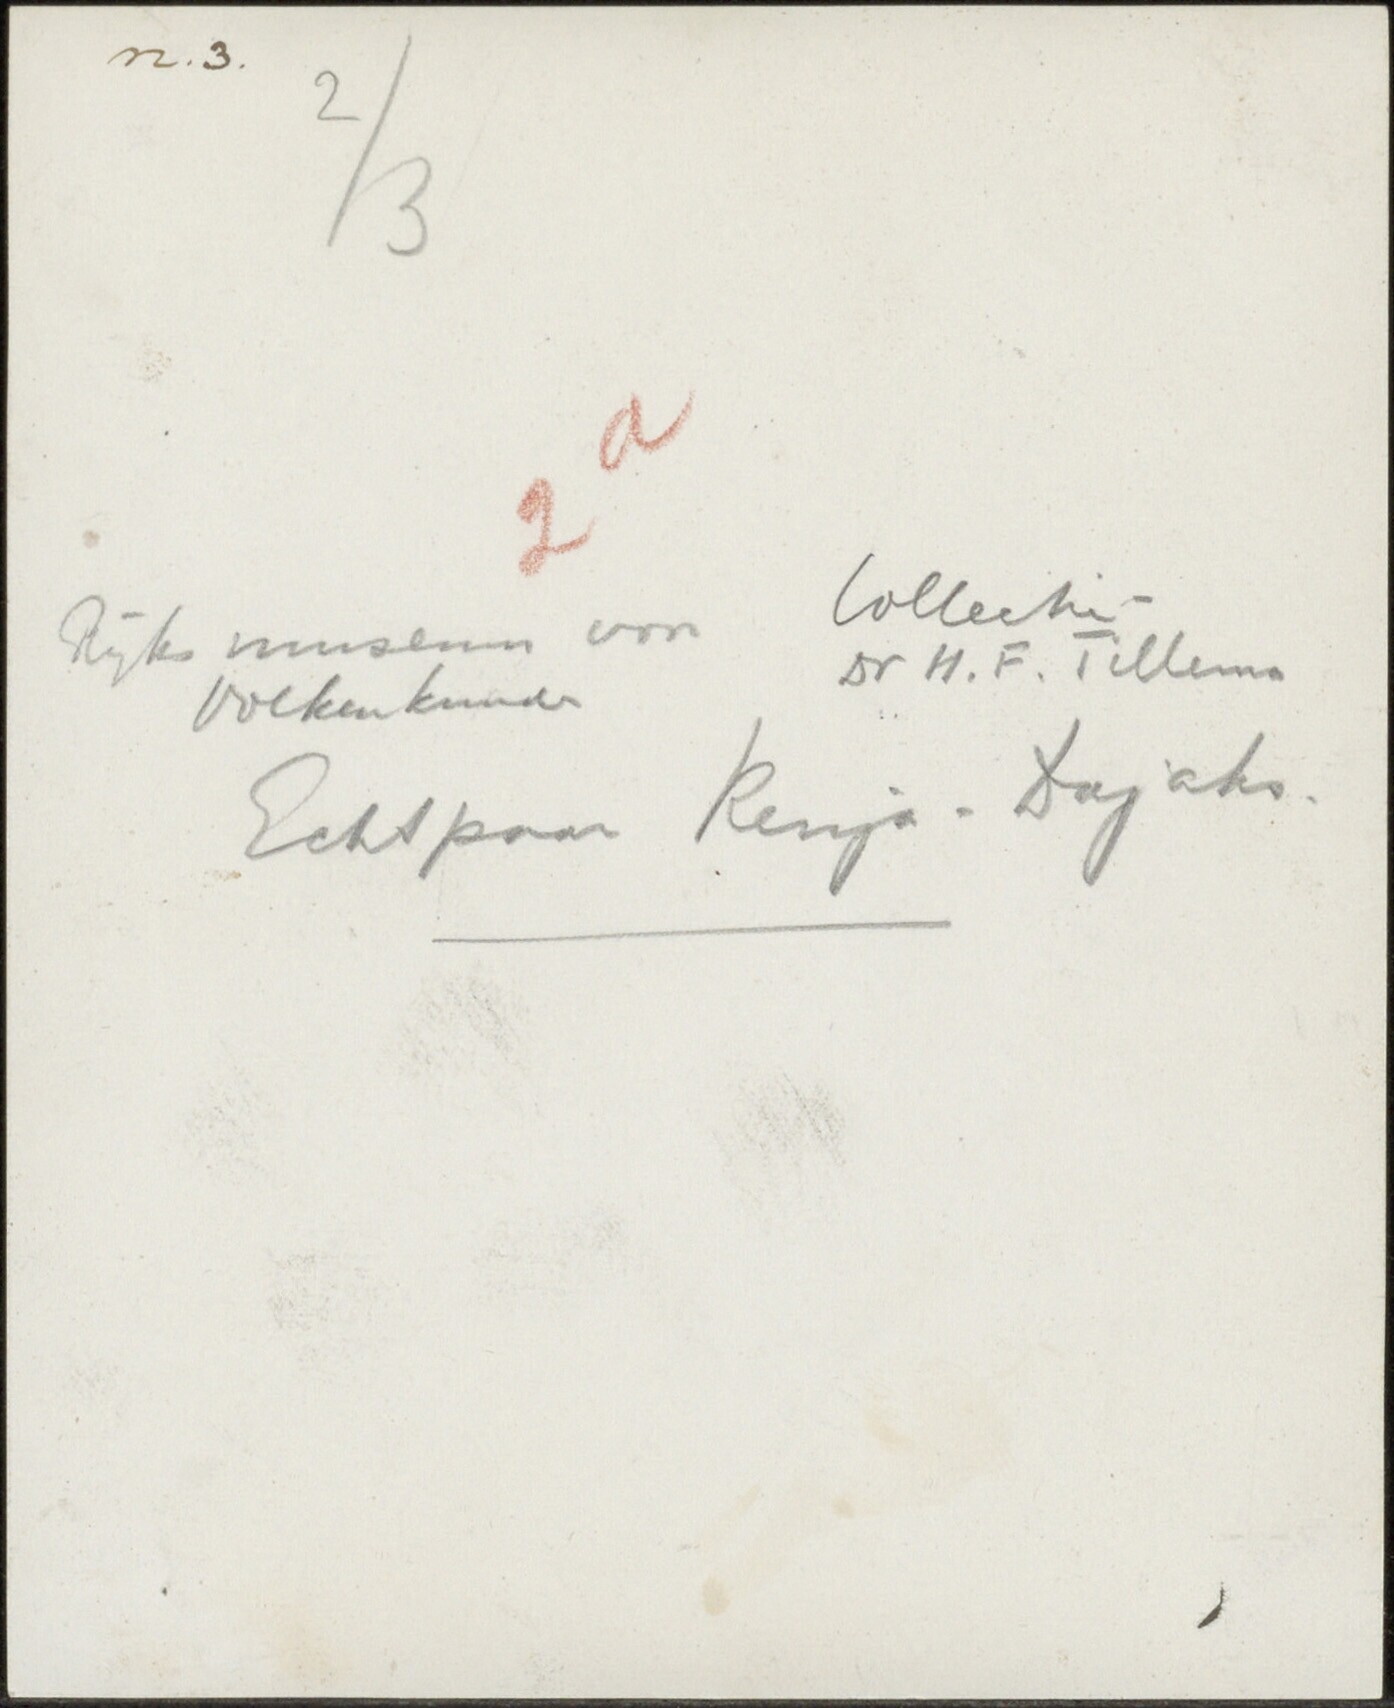 n. 3.
2/3
2a
Rijksmuseum voor
Volkenkunde
Collectie
Dr H. F. Tillema
Echtpaar Kenja - Dajaks.